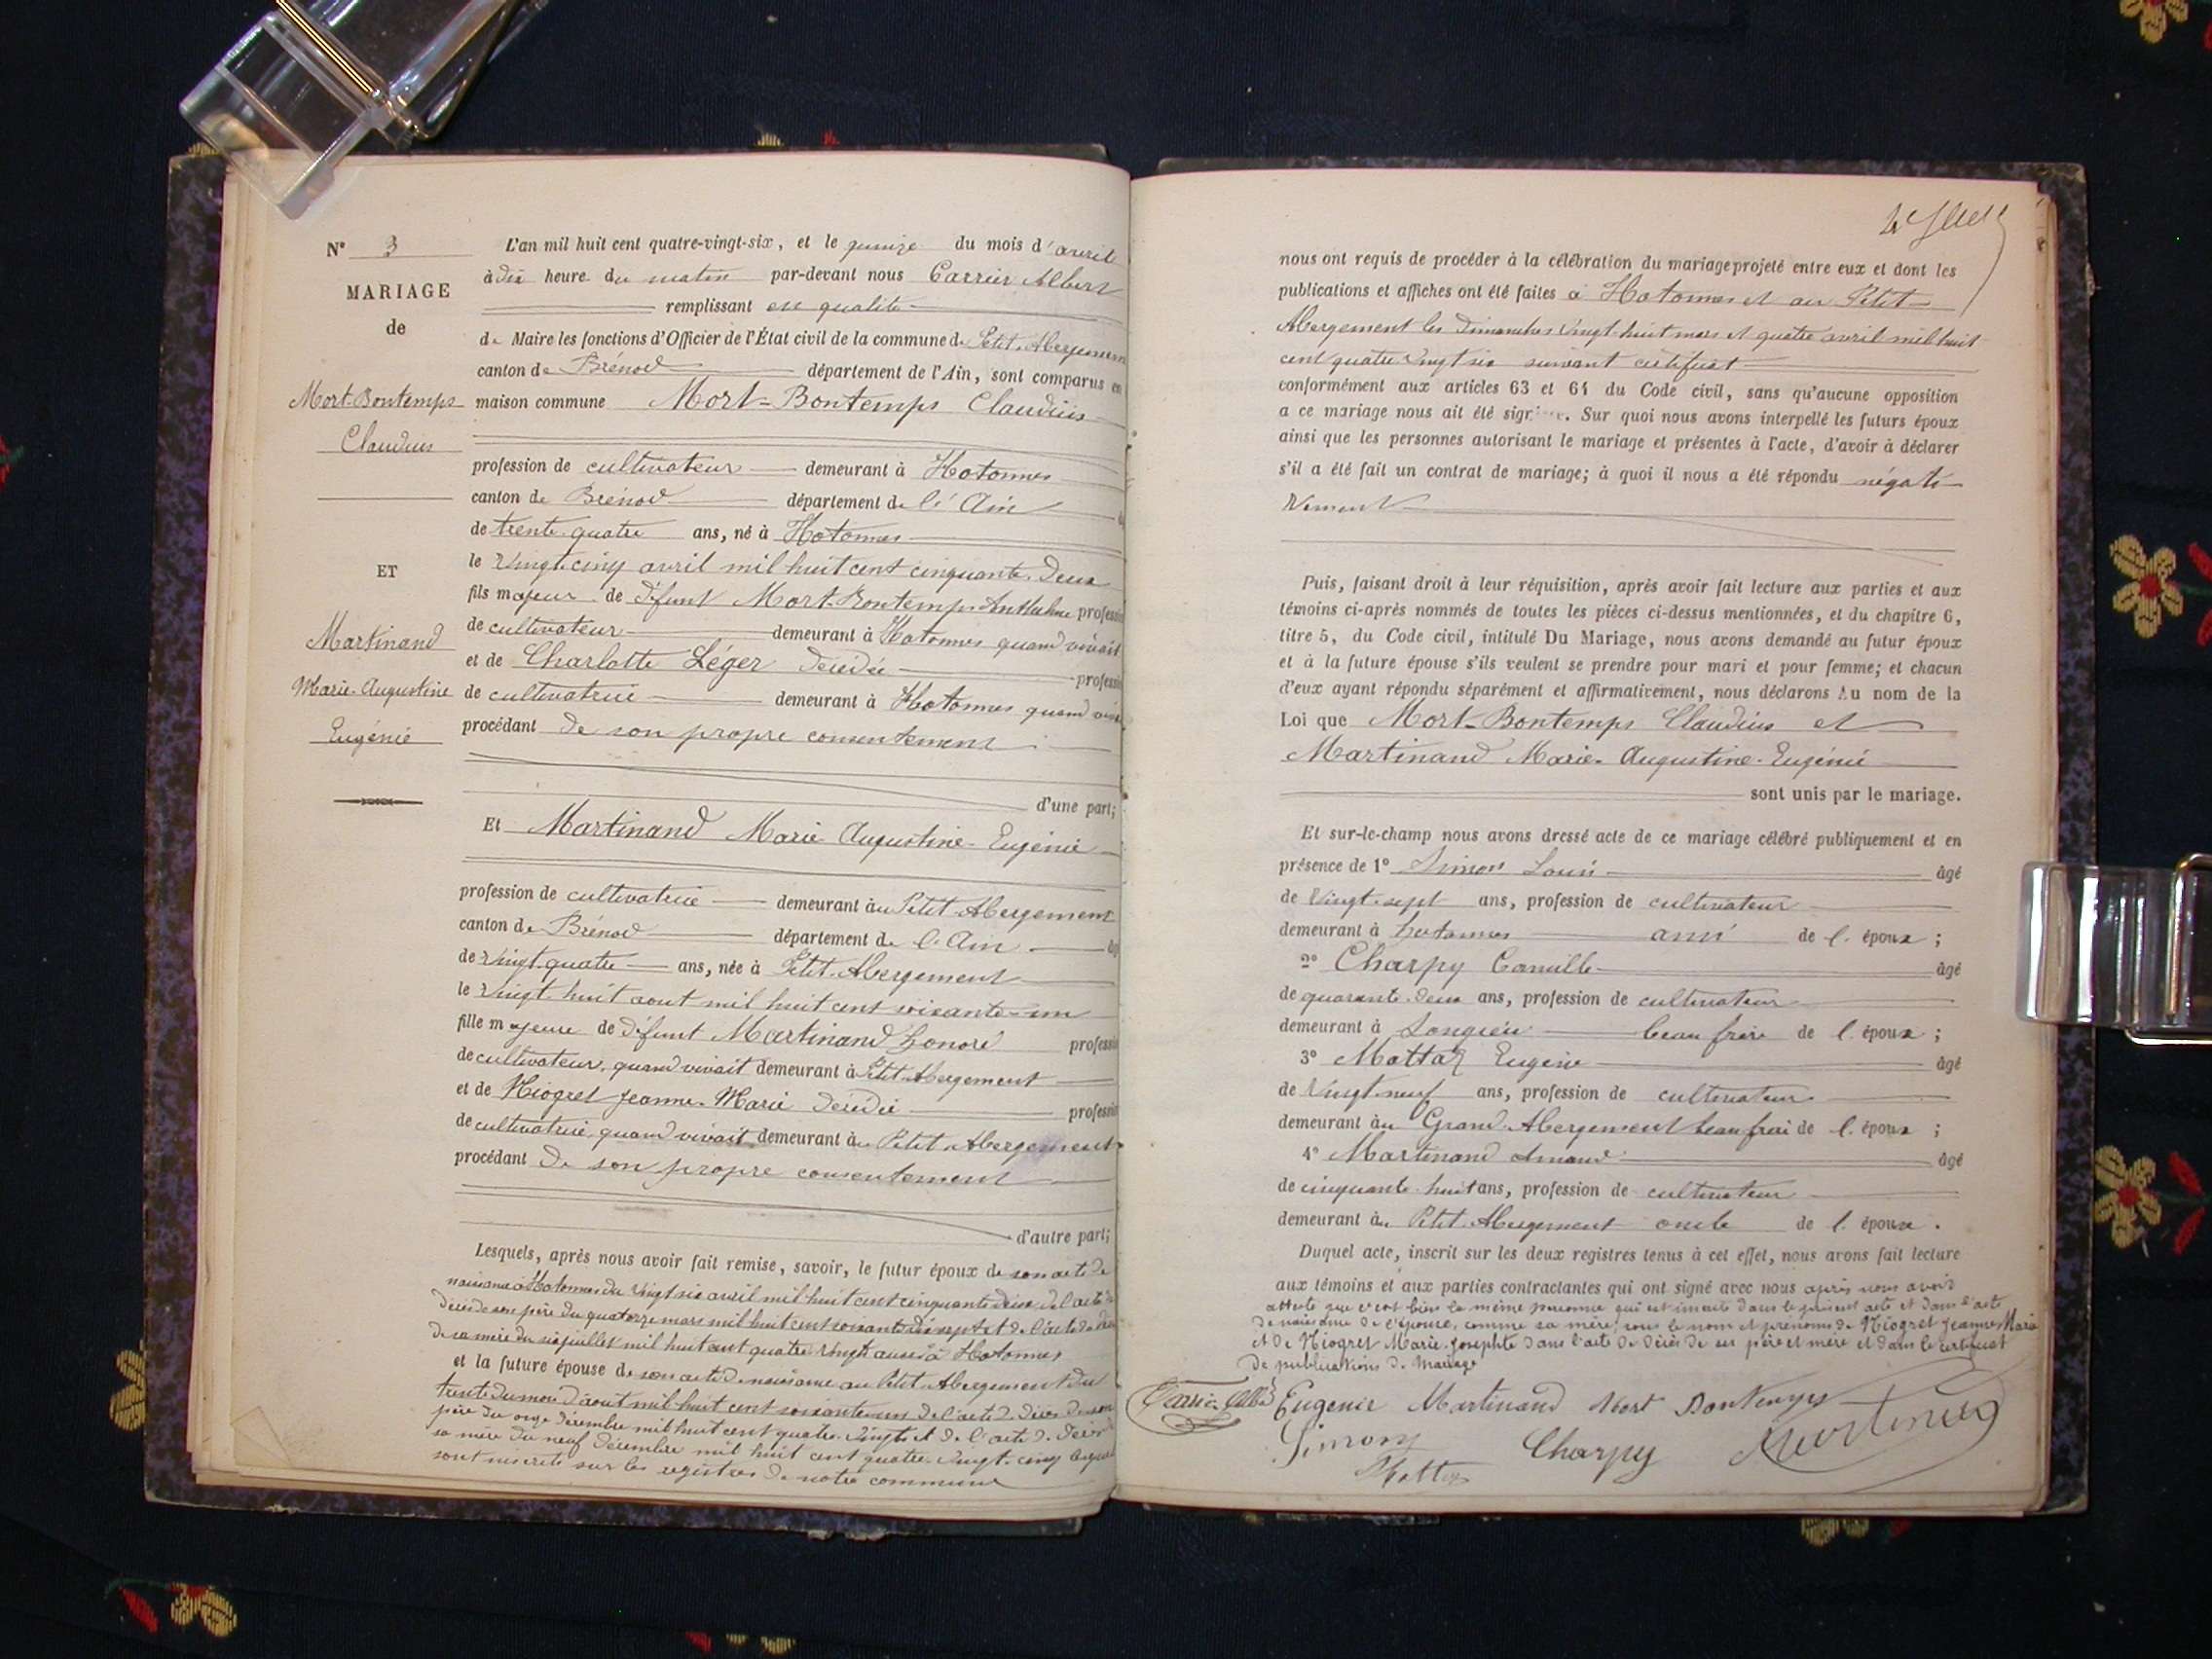 N° 3
MARIAGE
de
Mort-Bontemps
Claudius
ET
Martinand
Marie-Augustine
Eugénie
L'an mil huit cent quatre-vingt-six, et le quinze du mois d'avril
à dix heure du matin par-devant nous Carrier Albert
remplissant en qualité
de Maire les fonctions d'Officier de l'État civil de la commune de Petit-Abergement
canton de Brénod département de l'Ain, sont comparus en
maison commune Mort-Bontemps Claudius
profession de cultivateur demeurant à Hotonnes
canton de Brénod département de l'Ain
de trente-quatre ans, né à Hotonnes
le vingt-cinq avril mil huit cent cinquante-deux
fils majeur de défunt Mort-Bontemps Anthelme professi
de cultivateur demeurant à Hotonnes quand vivait
et de Charlotte Léger décédée professi
de cultivatrice demeurant à Hotonnes quand viv
procédant de son propre consentement
d'une part;
Et Martinand Marie Augustine-Eugénie
profession de cultivatrice demeurant au Petit-Abergement
canton de Brénod département de l'Ain âg
de vingt-quatre ans, née à Petit-Abergement
le vingt-huit aout mil huit cent soixante-un
fille majeure de défunt Martinand honoré professi
de cultivateur, quand vivait demeurant à Petit-Abergement
et de Niogret Jeanne-Marie décédée professi
de cultivatrice, quand vivait demeurant au Petit-Abergement
procédant de son propre consentement
d'autre part;
Lesquels, après nous avoir fait remise, savoir, le futur époux de son acte de
naissance à Hotonnes du vingt six avril mil huit cent cinquante deux, de l'acte de
décès de son père du quatorze mars mil huit cent soixante dix sept et de l'acte de décès
de sa mère du six juillet mil huit cent quatre-vingt à Hotonnes
et la future épouse de son acte de naissance au Petit-Abergement du
trente du mois d'aout mil huit cent soixante un de l'acte de décès de son
père du onze décembre mil huit cent quatre-vingt et de l'acte de décès
sa mère du neuf décembre mil huit cent quatre-vingt-cinq lesquels
sont inscrits sur les registres de notre commune
nous ont requis de procéder à la célébration du mariage projeté entre eux et dont les
publications et affiches ont été faites à Hotonnes et au Petit-
Abergement les dimanches vingt-huit mars et quatre avril mil huit
cent quatre-vingt six suivant certificat
conformément aux articles 63 et 64 du Code civil, sans qu'aucune opposition
a ce mariage nous ait été signifiée. Sur quoi nous avons interpellé les futurs époux
ainsi que les personnes autorisant le mariage et présentes à l'acte, d'avoir à déclarer
s'il a été fait un contrat de mariage; à quoi il nous a été répondu négati
vement
Puis, faisant droit à leur réquisition, après avoir fait lecture aux parties et aux
témoins ci-après nommés de toutes les pièces ci-dessus mentionnées, et du chapitre 6,
titre 5, du Code civil, intitulé Du Mariage, nous avons demandé au futur époux
et à la future épouse s'ils veulent se prendre pour mari et pour femme; et chacun
d'eux ayant répondu séparément et affirmativement, nous déclarons Au nom de la
Loi que Mort-Bontemps Claudius et
Martinand Marie-Augustine-Eugénie
sont unis par le mariage.
Et sur-le-champ nous avons dressé acte de ce mariage célébré publiquement et en
présence de 1° Simon Louis âgé
de vingt-sept ans, profession de cultivateur
demeurant à hotonnes ami de l. époux ;
2° Charpy Camille âgé
de quarante-deux ans, profession de cultivateur
demeurant à Songieu beau frère de l. époux ;
3° Mottaz Eugène âgé
de vingt-neuf ans, profession de cultivateur
demeurant au Grand-Abergement beau frère de l. époux ;
4° Martinand Armand âgé
de cinquante-huit ans, profession de cultivateur
demeurant au Petit-Abergement oncle de l. épouse.
Duquel acte, inscrit sur les deux registres tenus à cet effet, nous avons fait lecture
aux témoins et aux parties contractantes qui ont signé avec nous après nous avoir
attesté que c'est bien la même personne qui est inscrite dans le présent acte et dans l'acte
de naissance de l'épouse, comme sa mère, sous le nom et prénoms de Niogret Jeanne Marie
et de Niogret Marie-Josephte dans l'acte de décès de ses père et mère et dans le certificat
de publications de mariage
Carrier Albert Eugenie Martinand Mort Bontemps
Simon Charpy Martinand
Mottaz